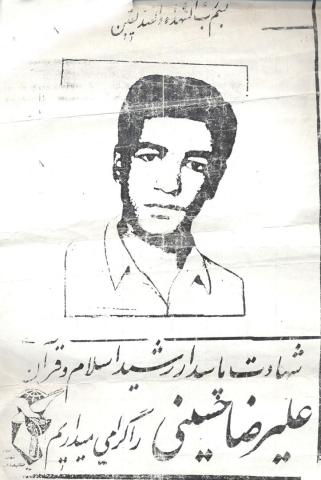 بسم رب الشهداء والصدیقین
شهادت پاسدار رشید اسلام و قرآن
علیرضا حسینی را گرامی میداریم